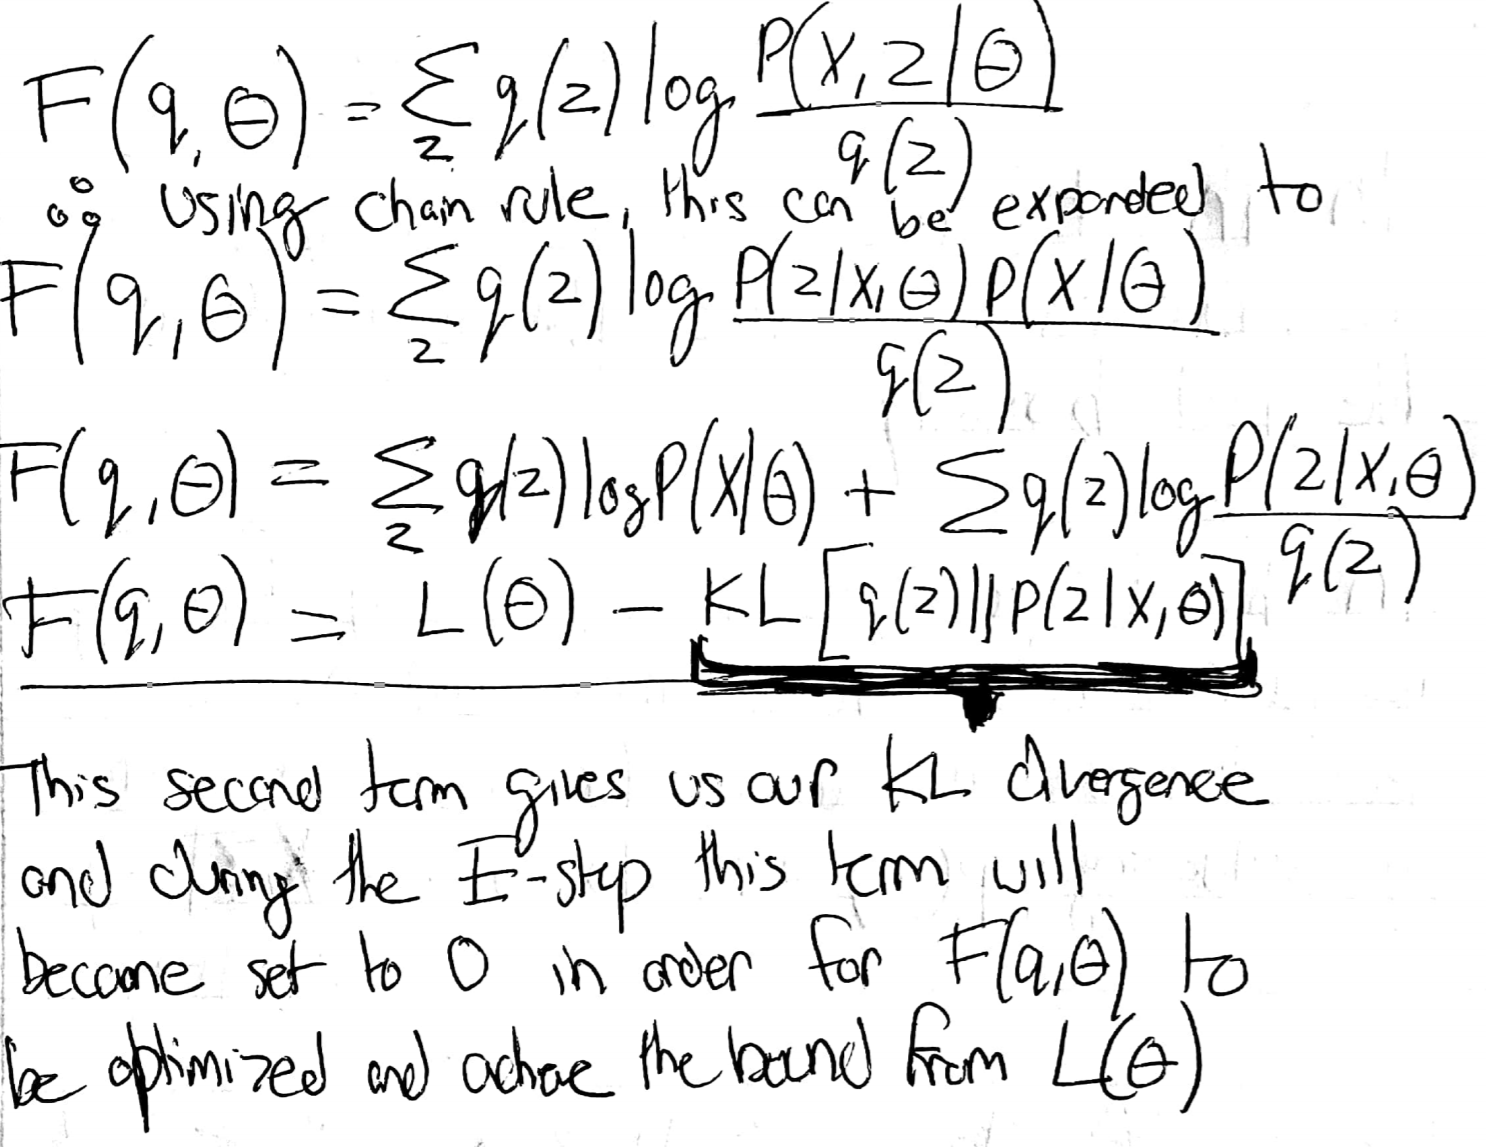 F(q,θ) = Σ_z q(z) log P(X,z|θ) / q(z)
∴ using chain rule, this can be expanded to
F(q,θ) = Σ_z q(z) log P(z|X,θ) P(X|θ) / q(z)
F(q,θ) = Σ_z q(z) log P(X|θ) + Σ q(z) log P(z|X,θ) / q(z)
F(q,θ) = L(θ) - KL[q(z)||P(z|X,θ)]
This second term gives us our KL divergence
and during the E-step this term will
become set to 0 in order for F(q,θ) to
be optimized and achieve the bound from L(θ)